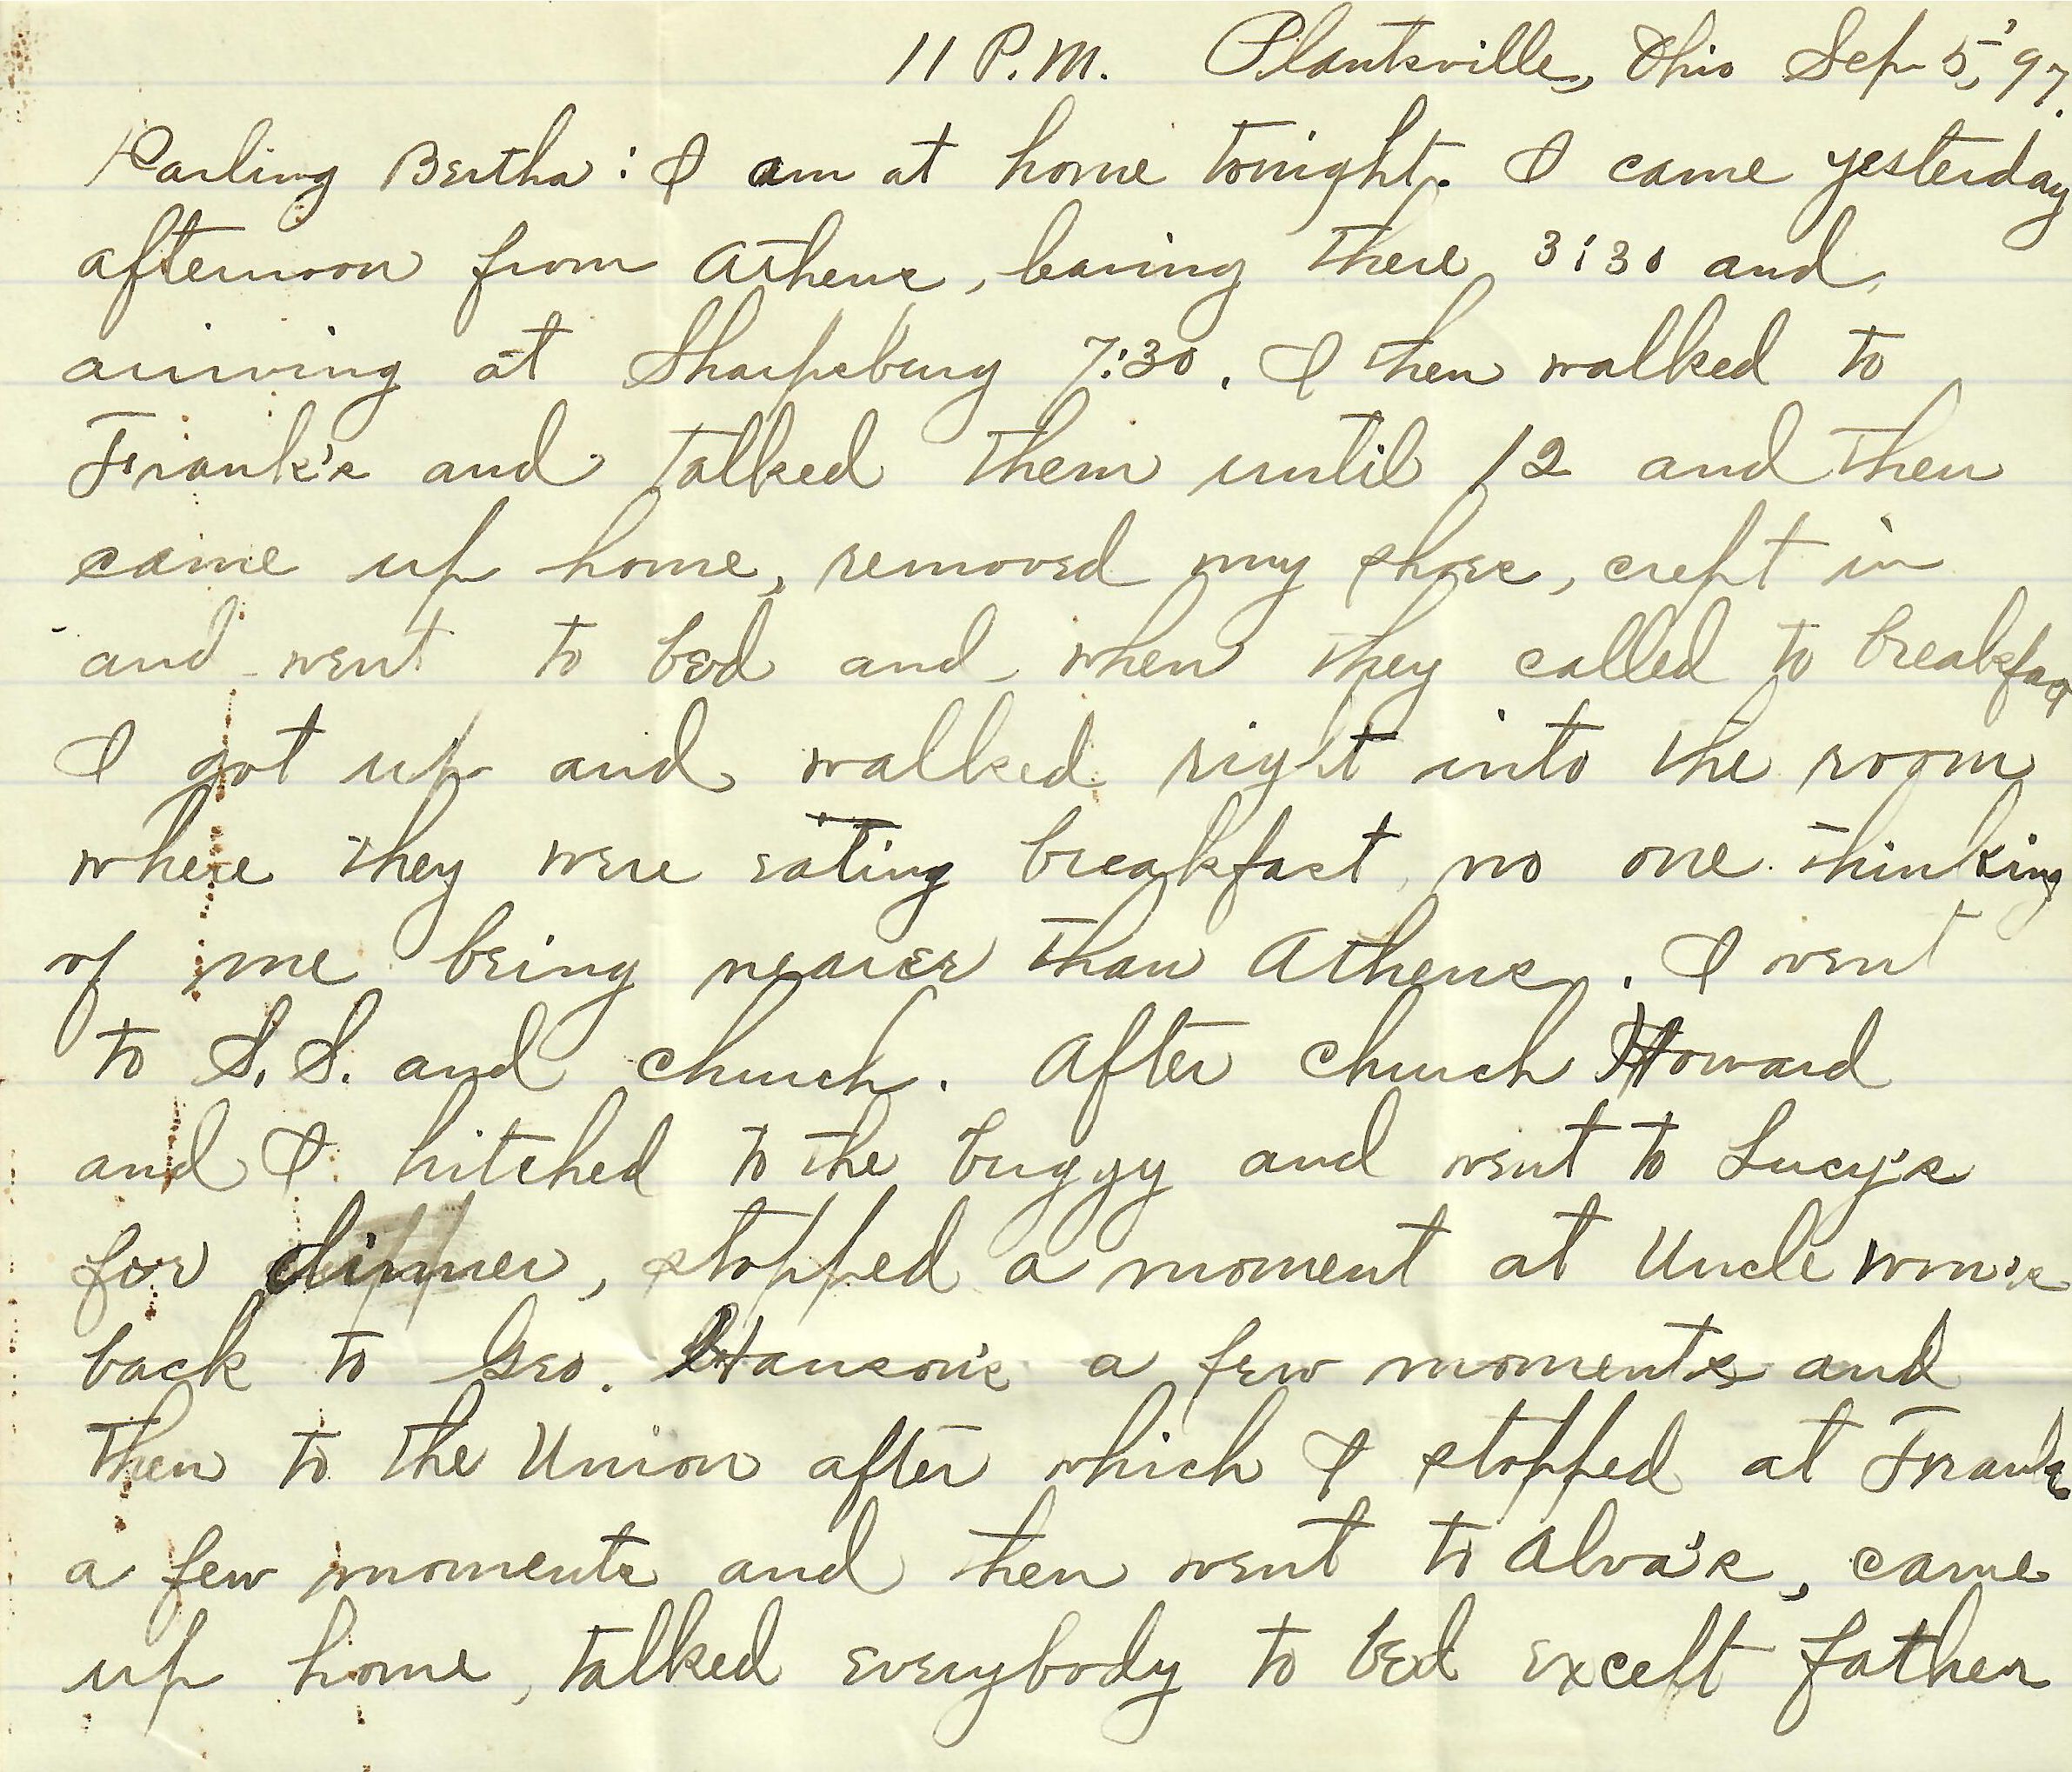 11 P.M. Plantsville, Ohio Sep 5, '97.
Darling Bertha: I am at home tonight. I came yesterday
afternoon from Athens, leaving there 3:30 and
arriving at Sharpsburg 7:30. I then walked to
Frank's and talked them until 12 and then
came up home, removed my shoes, crept in
and went to bed and when they called to breakfas
I got up and walked right into the room
where they were eating breakfast, no one thinking
of me being nearer than Athens. I went
to S.S. and church. After church Howard
and I hitched to the buggy and went to Lucy's
for dinner, stopped a moment at Uncle Wm's
back to Geo. Hanson's a few moments and
then to the Union after which I stopped at Franks
a few moments and then went to Alva's, came
up home, talked everybody to bed except father